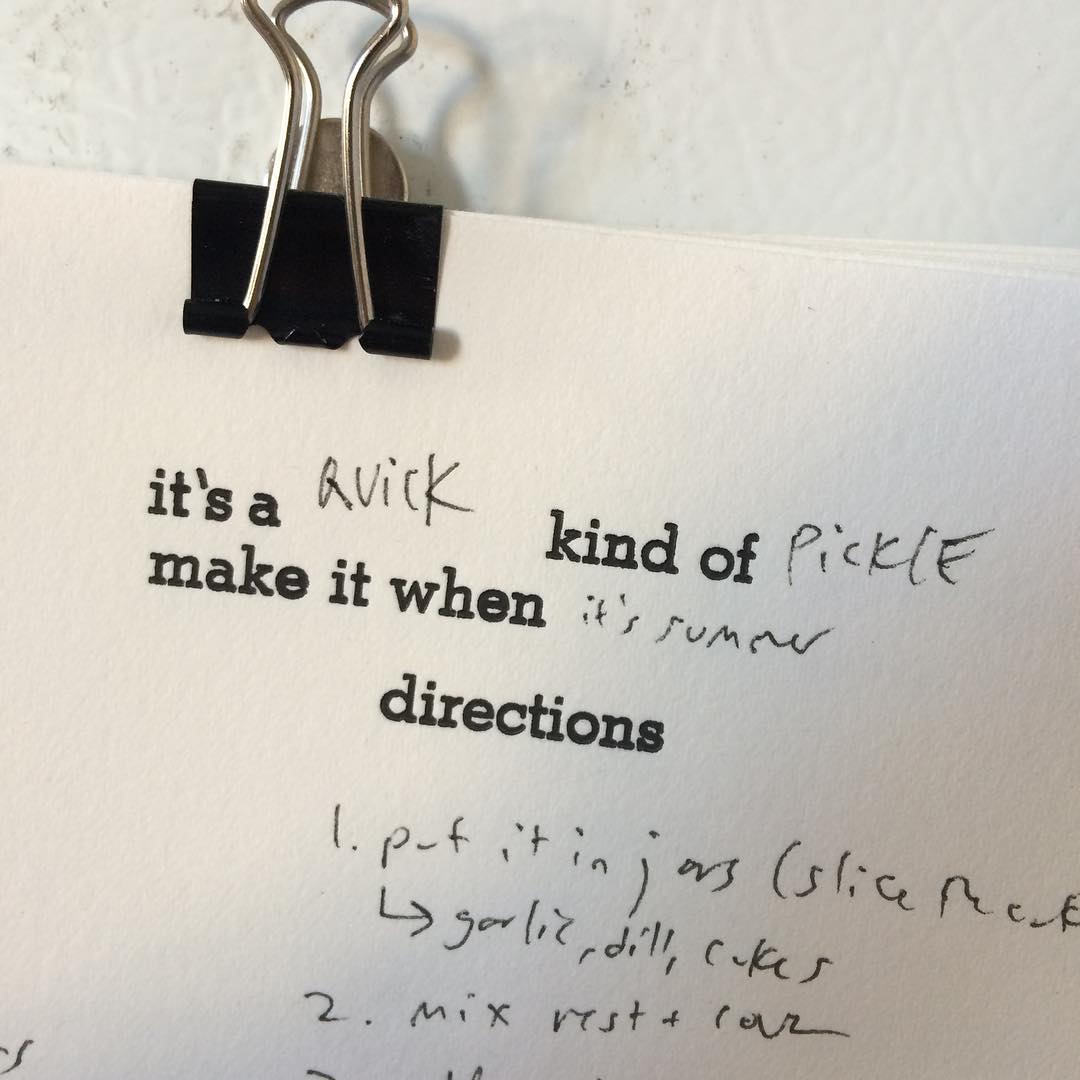 it's a QUICK kind of PICKLE
make it when it's summer
directions
1. put it in jars (slice the cuke
↳ garlic, dill, cukes
2. mix rest +
3.